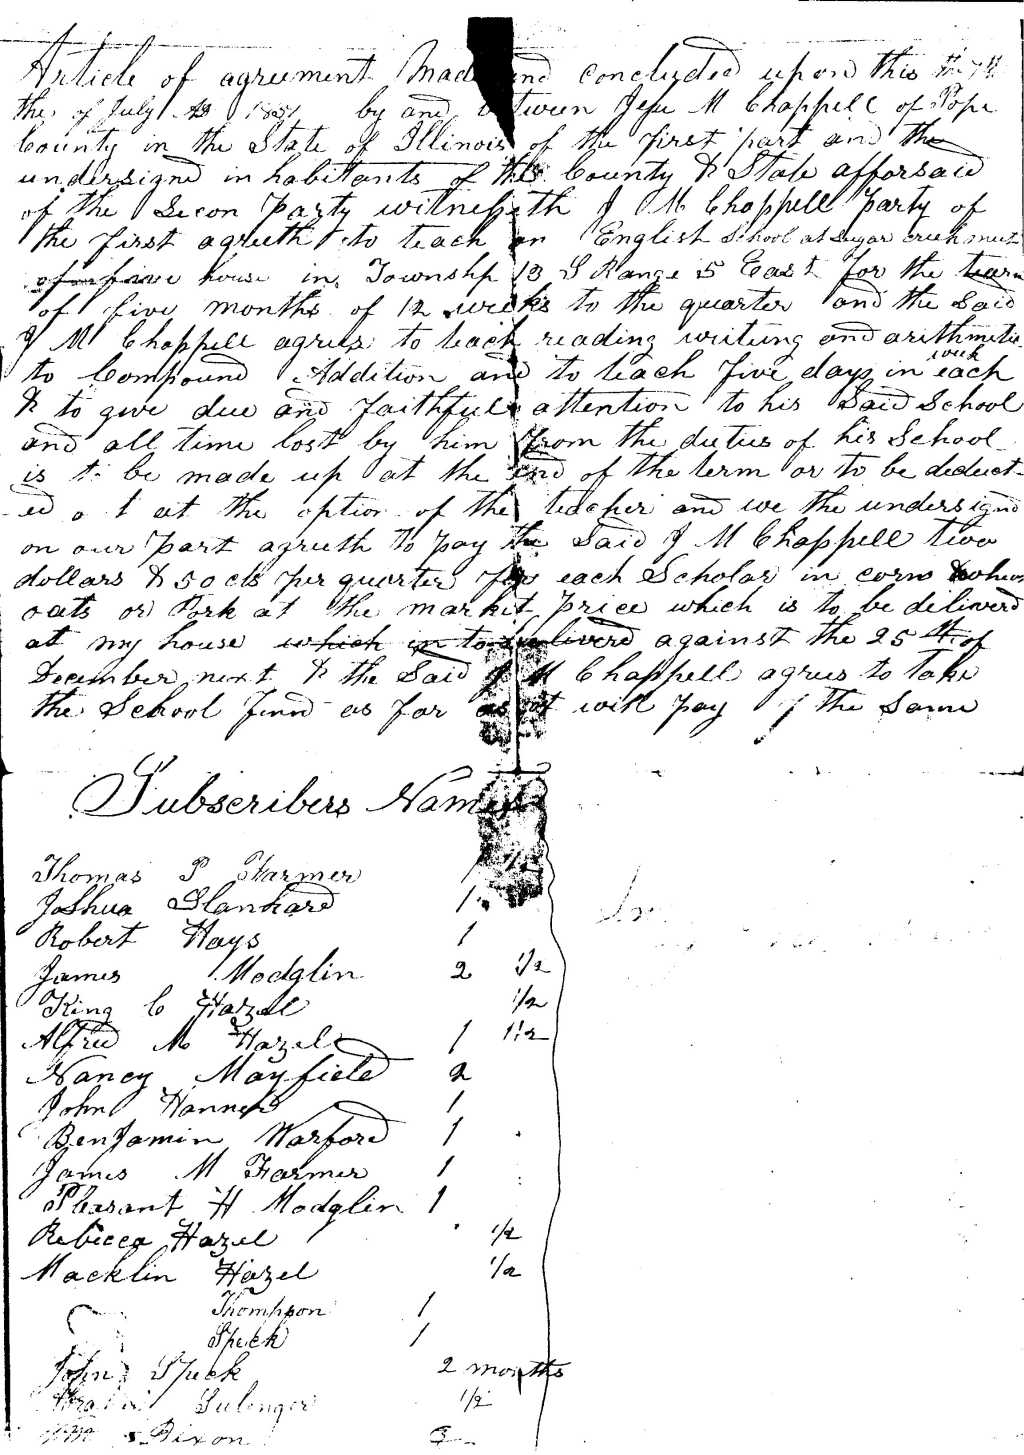 Article of agreement Made and concluded upon this
the of July AD by and between Jesse M Chappell of Pope
County in the State of Illinois of the first part and the
undersignd inhabitants of the County & State afforsaid
of the Secon Party witnesseth J M Chappell Party of
the first agreeth to teach an English School at Sugar creek
house in Township 13 S Range 5 East for the
of five months of 12 weeks to the quarter and the Said
J M Chappell agrees to teach reading writing and arithmetic
to Compound Addition and to teach five days in each week
& to give due and faithful attention to his Said School
and all time lost by him from the duties of his School
is to be made up at the end of the term or to be deduct-
ed at the option of the teacher and we the undersignd
on our Part agreeth to pay the Said J M Chappell two
dollars & 50 cts per quarter for each Scholar in corn
oats or Pork at the market price which is to be deliverd
at my house which in to deliverd against the 25th of
December next & the Said J M Chappell agrees to take
the School fund as far as it will pay the Same
Subscribers Names
Thomas P Farmer 1 1/2
Joshua Blanchard 1
Robert Hays 1
James Modglin 2 1/2
King C Hazel 1/2
Alfred M Hazel 1 1/2
Nancy Mayfield 2
John Hanner 1
BenJamin Warford 1
James M Farmer 1
Pleasant H Modglin 1
Rebicca Hazel 1/2
Macklin Hazel 1/2
Thompson 1
Speck 1
John Speck 2 months
Sulenger 1/2
Dixon